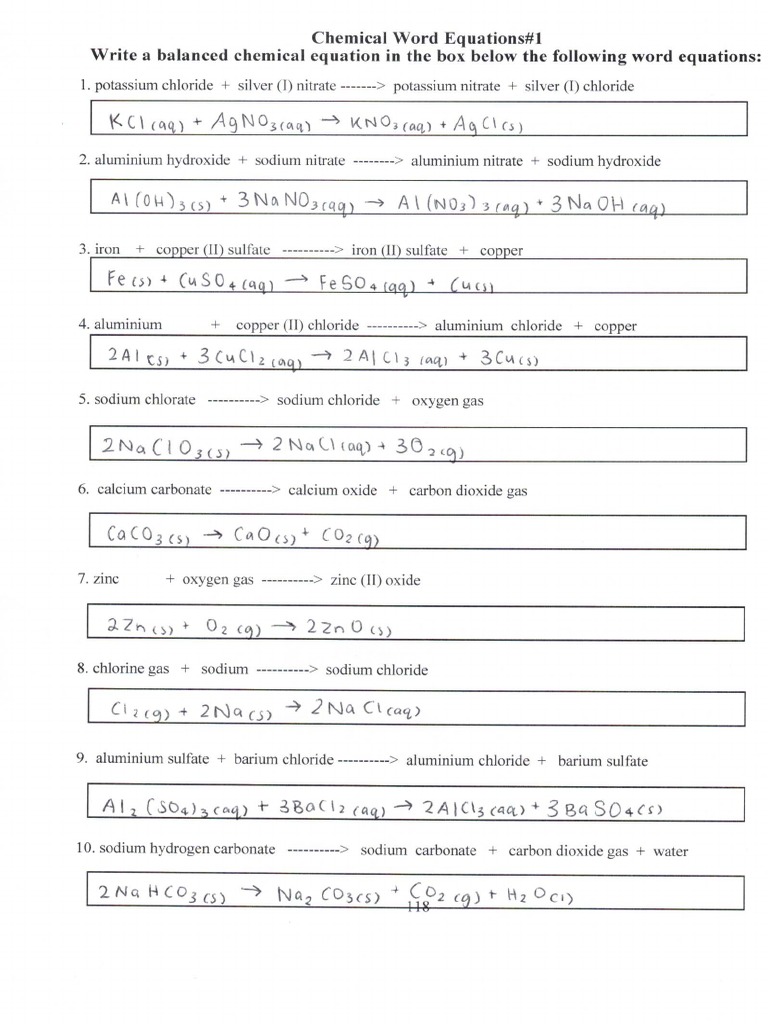 Chemical Word Equations#1
Write a balanced chemical equation in the box below the following word equations:
1. potassium chloride + silver (I) nitrate -------> potassium nitrate + silver (I) chloride
KCl(aq) + AgNO3(aq) → KNO3(aq) + AgCl(s)
2. aluminium hydroxide + sodium nitrate --------> aluminium nitrate + sodium hydroxide
Al(OH)3(s) + 3NaNO3(aq) → Al(NO3)3(aq) + 3NaOH(aq)
3. iron + copper (II) sulfate ----------> iron (II) sulfate + copper
Fe(s) + CuSO4(aq) → FeSO4(aq) + Cu(s)
4. aluminium + copper (II) chloride ----------> aluminium chloride + copper
2Al(s) + 3CuCl2(aq) → 2AlCl3(aq) + 3Cu(s)
5. sodium chlorate ----------> sodium chloride + oxygen gas
2NaClO3(s) → 2NaCl(aq) + 3O2(g)
6. calcium carbonate ----------> calcium oxide + carbon dioxide gas
CaCO3(s) → CaO(s) + CO2(g)
7. zinc + oxygen gas ----------> zinc (II) oxide
2Zn(s) + O2(g) → 2ZnO(s)
8. chlorine gas + sodium ----------> sodium chloride
Cl2(g) + 2Na(s) → 2NaCl(aq)
9. aluminium sulfate + barium chloride ----------> aluminium chloride + barium sulfate
Al2(SO4)3(aq) + 3BaCl2(aq) → 2AlCl3(aq) + 3BaSO4(s)
10. sodium hydrogen carbonate ----------> sodium carbonate + carbon dioxide gas + water
2NaHCO3(s) → Na2CO3(s) + CO2(g) + H2O(l)
118